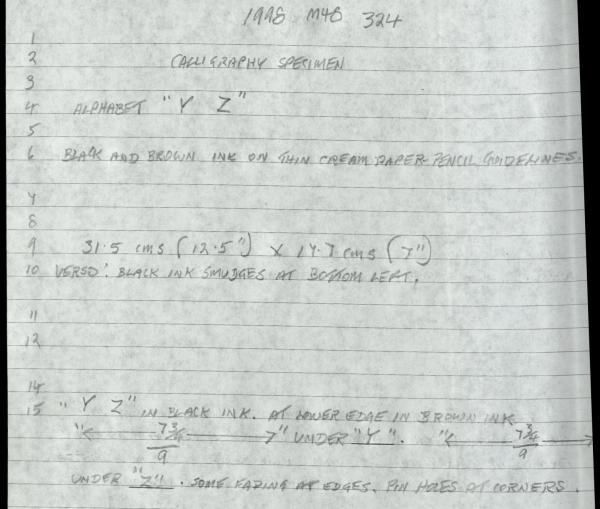 1998 M48 324
1
2 CALLIGRAPHY SPECIMEN
3
4 ALPHABET "Y Z"
5
6 BLACK AND BROWN INK ON THIN CREAM PAPER PENCIL GUIDELINES.
7
8
9 31.5 cms (12.5") x 17.7 cms (7")
10 VERSO: BLACK INK SMUDGES AT BOTTOM LEFT.
11
12
14
15 "Y Z" IN BLACK INK. AT LOWER EDGE IN BROWN INK
"← 7¾/9 →" UNDER "Y". "← 7¾/9 →
UNDER "Z". SOME FADING AT EDGES. PIN HOLES AT CORNERS.